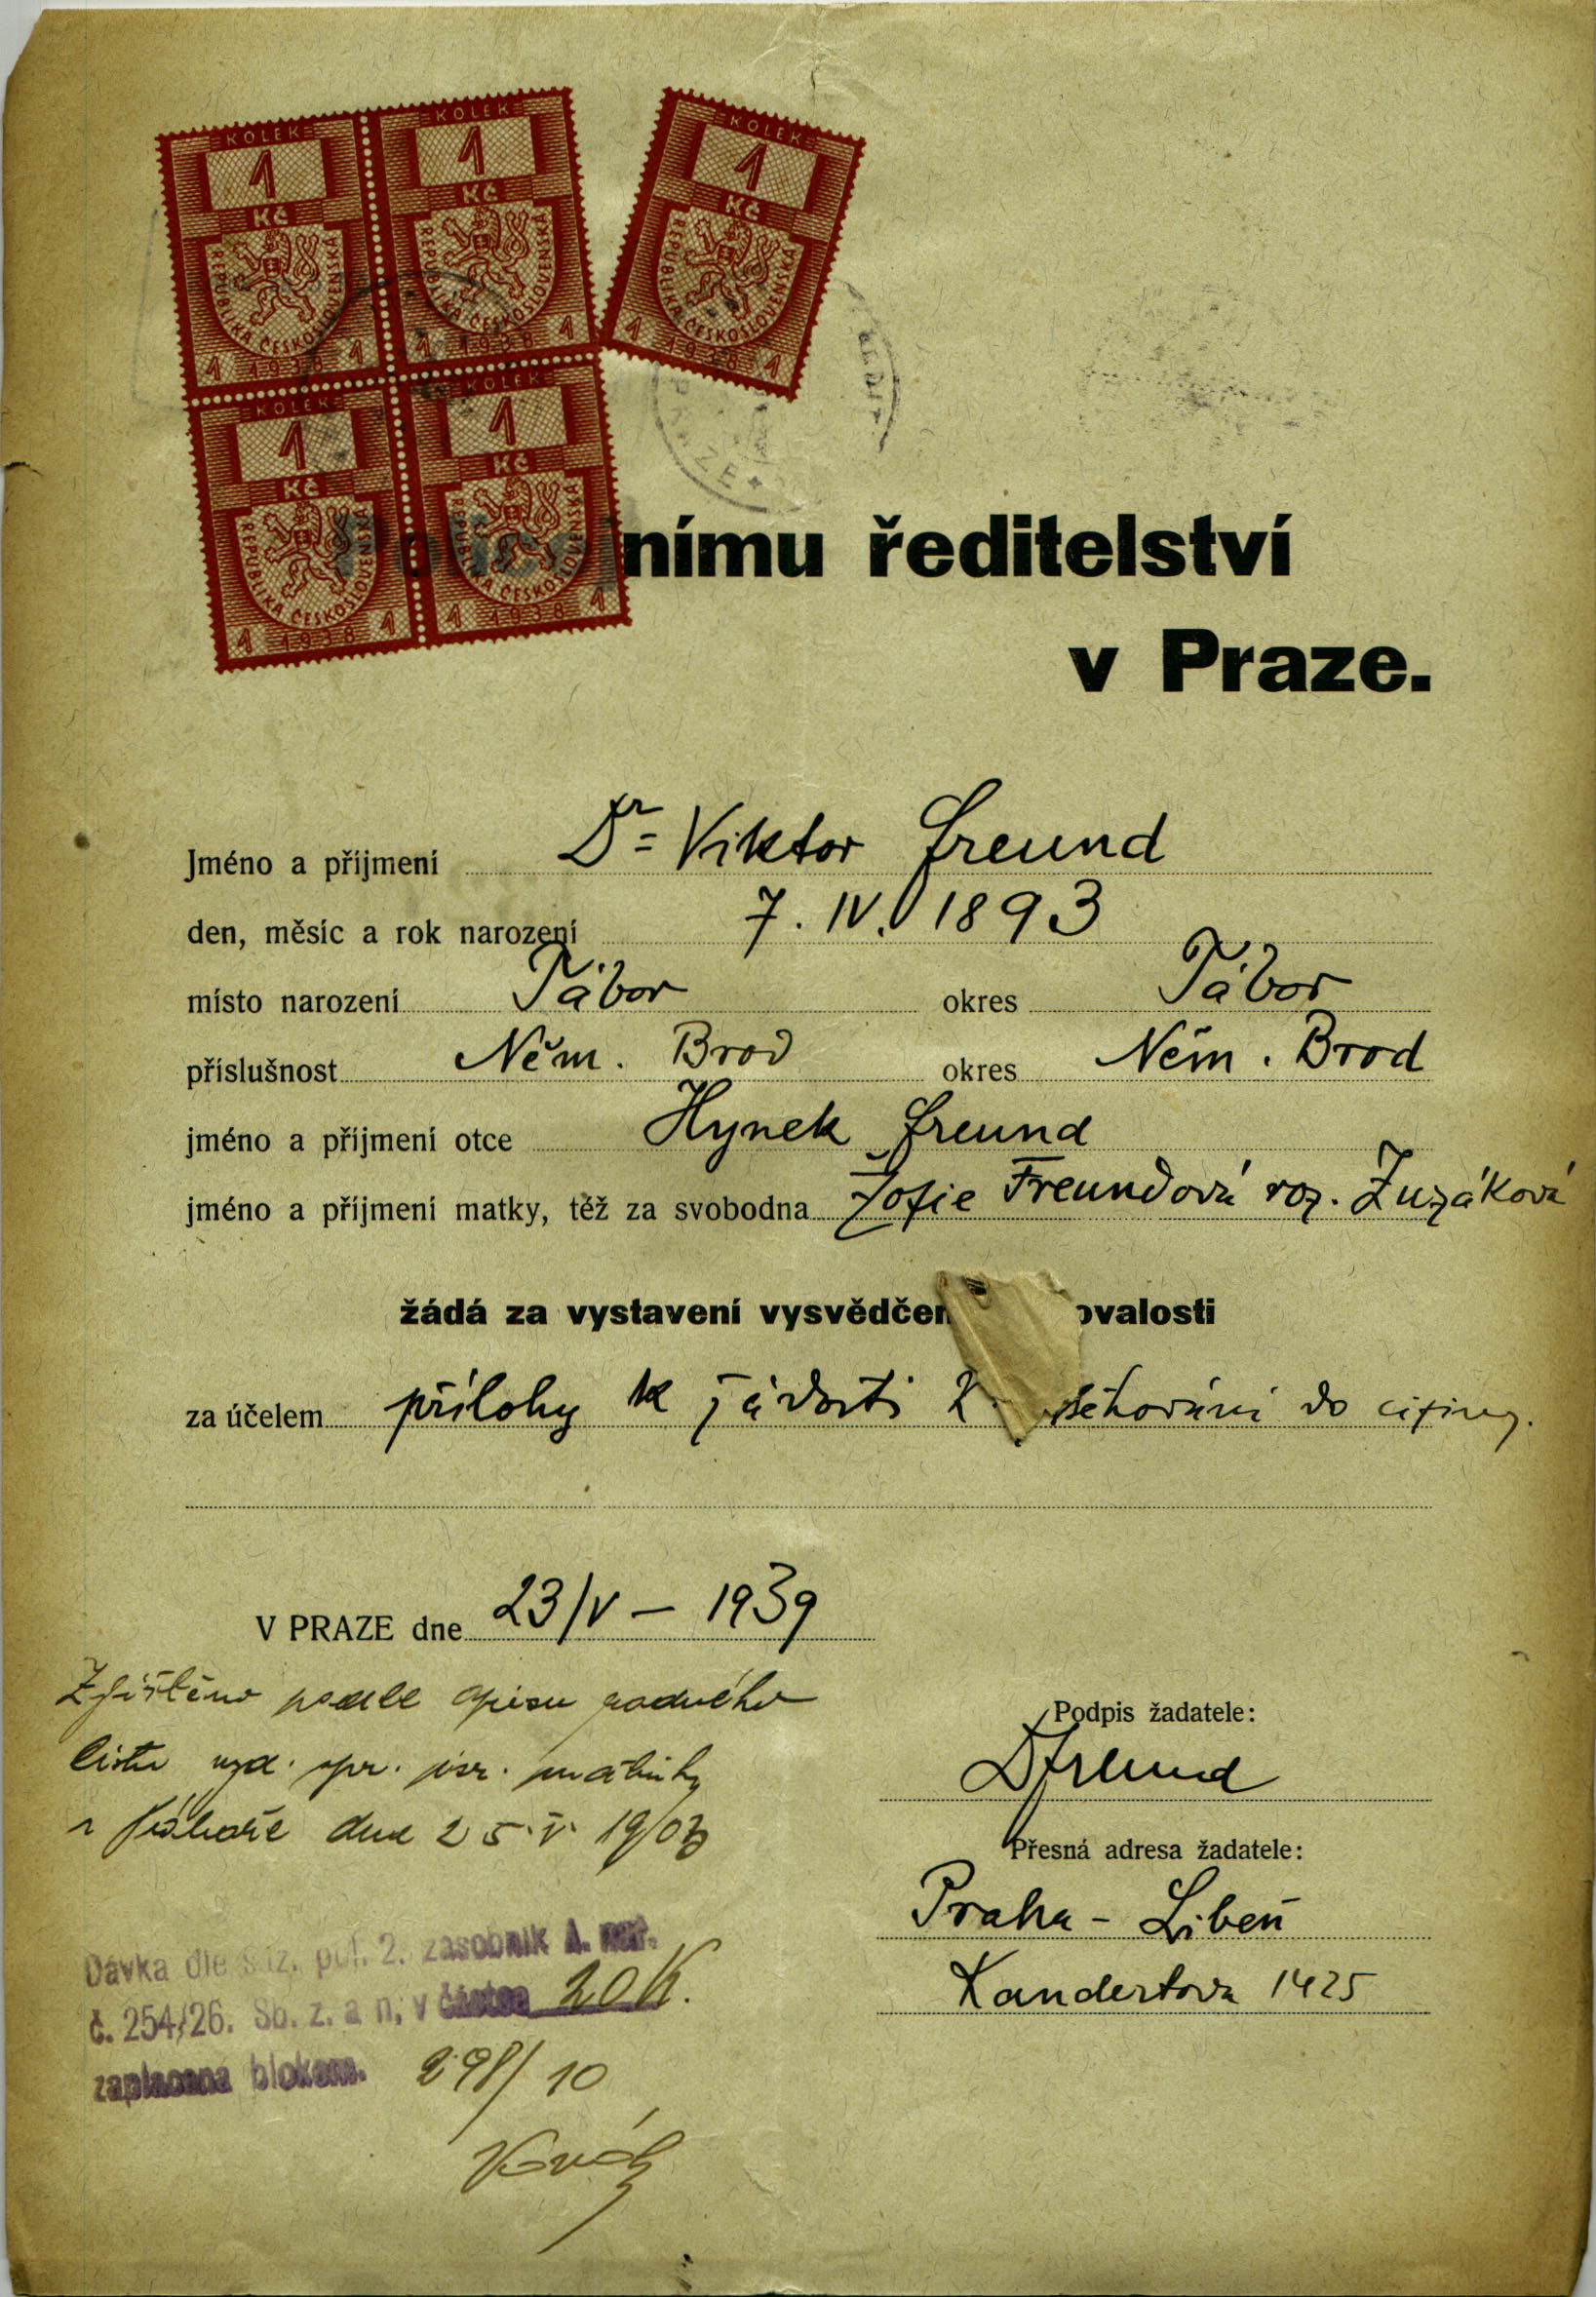 KOLEK KOLEK KOLEK
1 1 1
Kč Kč Kč
REPUBLIKA ČESKOSLOVENSKÁ REPUBLIKA ČESKOSLOVENSKÁ REPUBLIKA ČESKOSLOVENSKÁ
1 1938 1 1 1938 1 1 1938 1
KOLEK KOLEK
1 1
Kč Kč
REPUBLIKA ČESKOSLOVENSKÁ REPUBLIKA ČESKOSLOVENSKÁ
1 1938 1 1 1938 1
PRAZE
Policejnímu ředitelství
v Praze.
Jméno a příjmení Dr Viktor Freund
den, měsíc a rok narození 7. IV. 1893
místo narození Tábor okres Tábor
příslušnost Něm. Brod okres Něm. Brod
jméno a příjmení otce Hynek Freund
jméno a příjmení matky, též za svobodna Žofie Freundová roz. Žuzáková
žádá za vystavení vysvědčen ovalosti
za účelem přílohy k žádosti do ciziny.
V PRAZE dne 23/V – 1939
Zjištěno podle opisu rodného
listu vyd. spr. isr. matriky
v Táboře dne 25. V. 1903
Podpis žadatele:
DFreund
Přesná adresa žadatele:
Praha - Libeň
Kandertova 1425
Dávka dle saz. pol. 2. zásobník A. nař.
č. 254/26. Sb. z. a n. v částce 20 K.
zaplacena blokem. 298/10